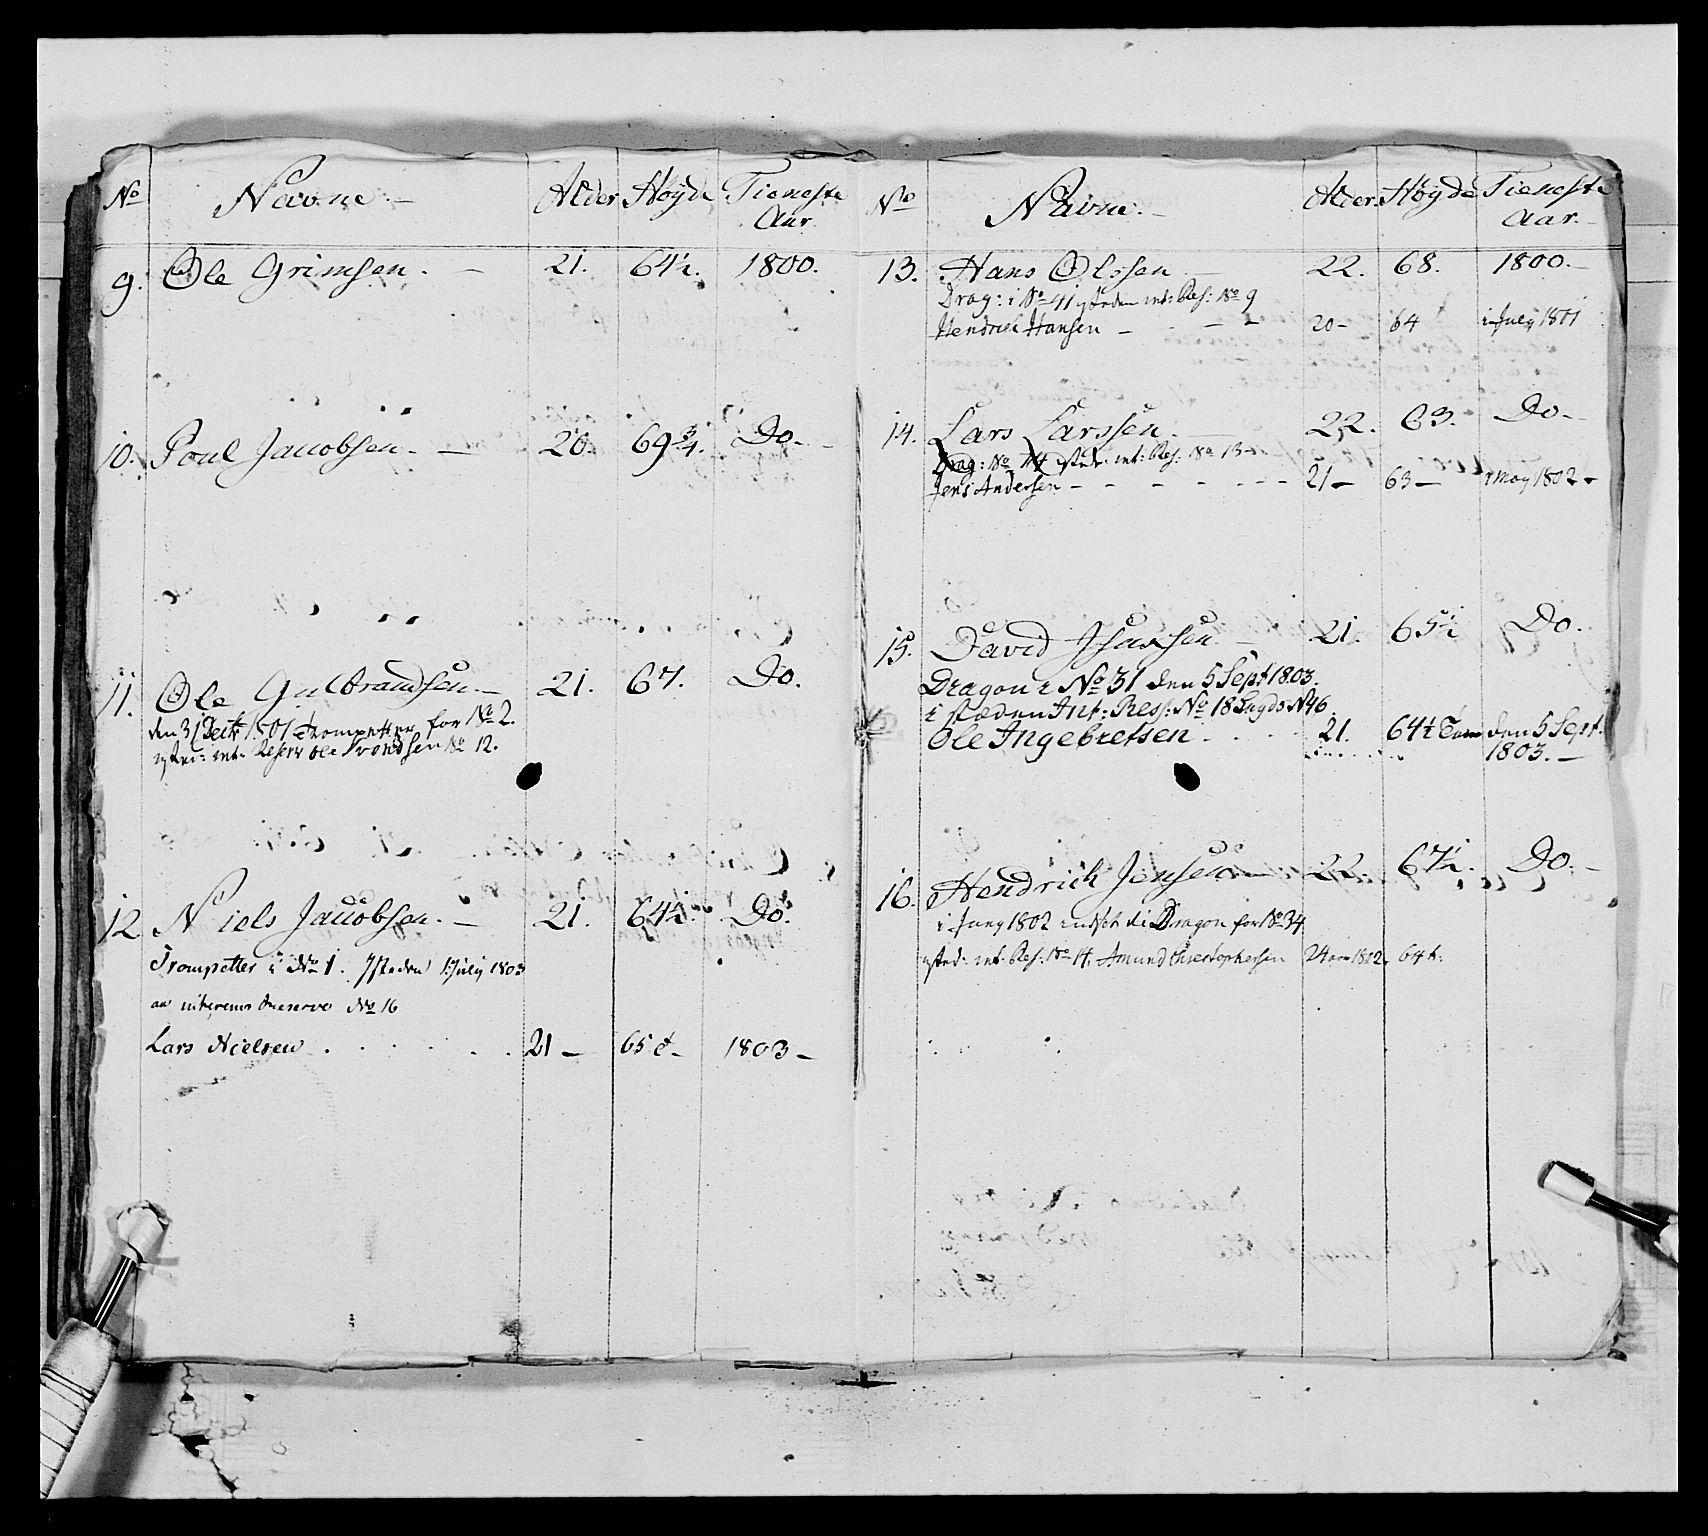 No Navne. Alder Høyde Tieneste Aar.
9. Ole Grimsen. 21. 64½. 1800.
10. Poul Jacobsen. 20. 69¾. Do.
11. Ole Gulbrandsen. 21. 67. Do.
den 31 Decbr 1801 Trompetter for No 2.
isted: int: Reserv Ole Trondsen No 12.
12 Niels Jacobsen. 21. 64½. Do.
Trompetter i No 1. Isteden 1 July 1803
Reserve No 16
Lars Nielsen 21 65 1803
No Navne. Alder. Høyde Tieneste Aar.
13. Hans Olssen 22. 68. 1800.
Drag: i No 41 isteden int: Res: No 9
Hendrich Hansen 20 64 i July 1801
14. Lars Larssen. 22. 63. Do
Drag: No 44 isted: int: Res: No 13
Jens Andersen 21 63 May 1802
15. David Isacksen 21. 65½ Do.
Dragon i No 31 den 5 Sept 1803.
i stæden Int: Ress: No 18 No 46
Ole Ingebretsen 21. 64½ Tom den 5 Sept.
1803.
16. Hendrich Jensen 22. 67½. Do.
i Juny 1802 indsat til Dragon for No 34
isted: int: Res: No 14. Amund Christophersen 24 1802. 64